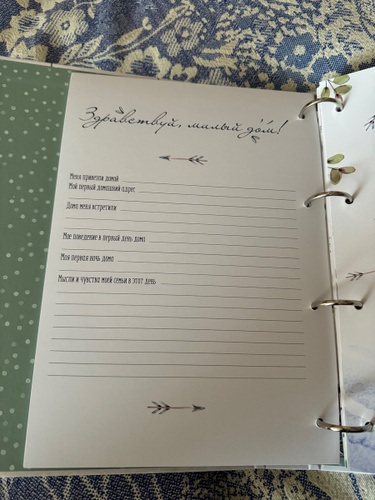 Здравствуй, милый дом!
Меня привезли домой
Мой первый домашний адрес
Дома меня встретили
Мое поведение в первый день дома
Моя первая ночь дома
Мысли и чувства моей семьи в этот день